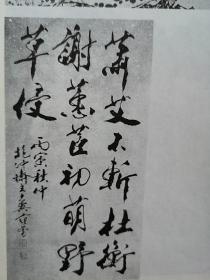 蕭艾不斬杜衡
謝蕙茝初萌野
草侵
丙寅秋仲